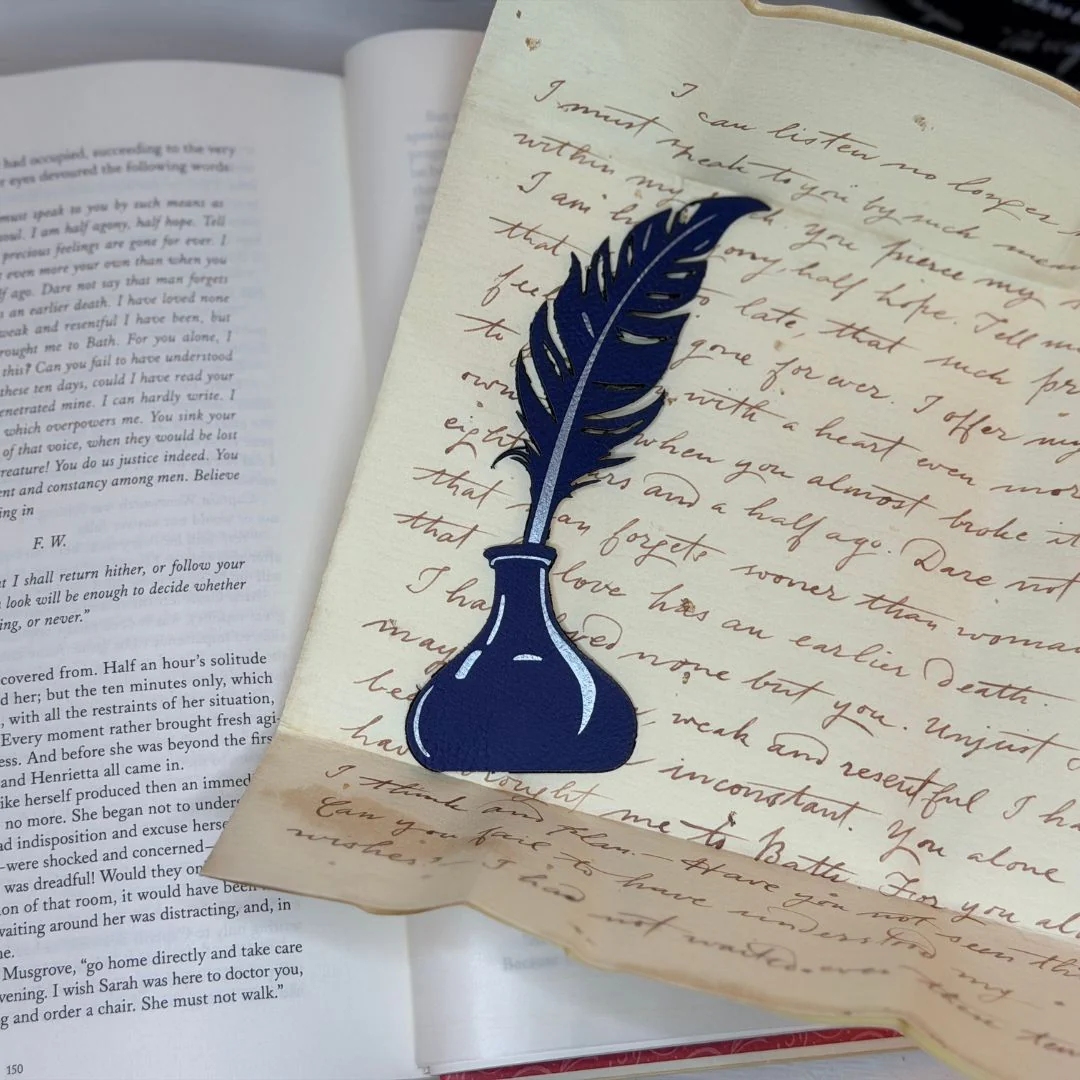 had occupied, succeeding to the very
eyes devoured the following words:
must speak to you by such means as
soul. I am half agony, half hope. Tell
precious feelings are gone for ever. I
even more your own than when you
ago. Dare not say that man forgets
an earlier death. I have loved none
weak and resentful I have been, but
rought me to Bath. For you alone, I
this? Can you fail to have understood
these ten days, could I have read your
enetrated mine. I can hardly write. I
which overpowers me. You sink your
of that voice, when they would be lost
reature! You do us justice indeed. You
ent and constancy among men. Believe
ing in
F. W.
t I shall return hither, or follow your
look will be enough to decide whether
ing, or never.”
covered from. Half an hour’s solitude
d her; but the ten minutes only, which
, with all the restraints of her situation,
Every moment rather brought fresh agi-
ess. And before she was beyond the firs
and Henrietta all came in.
ike herself produced then an immed
no more. She began not to unders
ad indisposition and excuse herse
—were shocked and concerned—
was dreadful! Would they on
on of that room, it would have been
waiting around her was distracting, and, in
me.
Musgrove, “go home directly and take care
vening. I wish Sarah was here to doctor you,
g and order a chair. She must not walk.”
150
I can listen no longer
I must speak to you by such mean
within my you pierce my
I am half hope. Tell me
that late, that such pre
gone for ever. I offer my
to with a heart even more
own when you almost broke it
eight and a half ago. Dare not
that man forgets sooner than woman
that love has an earlier death.
I ha ved none but you. Unjust
may weak and resentful I ha
be inconstant. You alone
hav rought me to Bath. For you al
I think and plan.— Have you not seen th
Can you fail to have understood my
wishes? I had not waited even